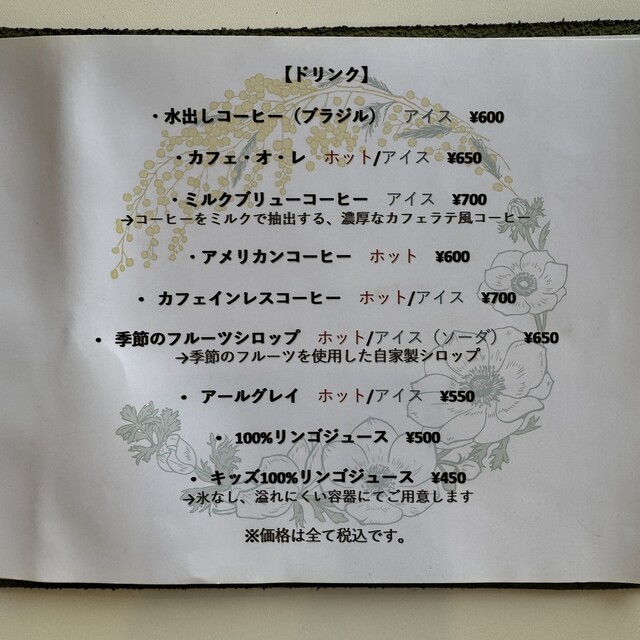 【ドリンク】
・水出しコーヒー（ブラジル）　アイス　¥600
・カフェ・オ・レ　ホット/アイス　¥650
・ミルクブリューコーヒー　アイス　¥700
→コーヒーをミルクで抽出する、濃厚なカフェラテ風コーヒー
・アメリカンコーヒー　ホット　¥600
・カフェインレスコーヒー　ホット/アイス　¥700
・季節のフルーツシロップ　ホット/アイス（ソーダ）　¥650
→季節のフルーツを使用した自家製シロップ
・アールグレイ　ホット/アイス　¥550
・100%リンゴジュース　¥500
・キッズ100%リンゴジュース　¥450
→氷なし、溢れにくい容器にてご用意します
※価格は全て税込です。